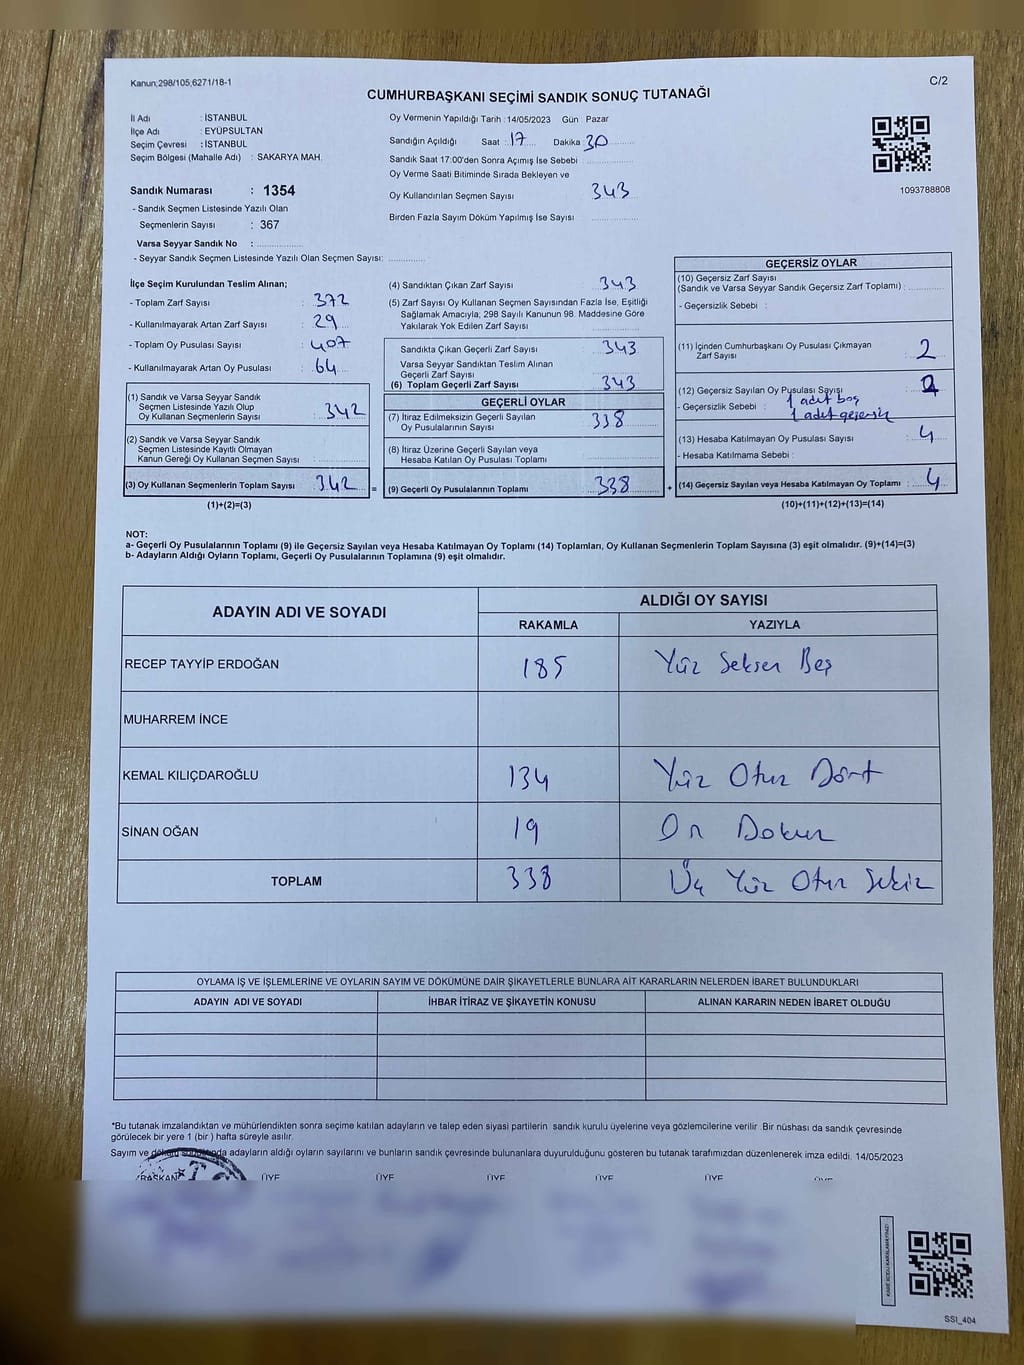 Kanun;298/105;6271/18-1
C/2
CUMHURBAŞKANI SEÇİMİ SANDIK SONUÇ TUTANAĞI
İl Adı : İSTANBUL
İlçe Adı : EYÜPSULTAN
Seçim Çevresi : İSTANBUL
Seçim Bölgesi (Mahalle Adı) : SAKARYA MAH.
Sandık Numarası : 1354
- Sandık Seçmen Listesinde Yazılı Olan
Seçmenlerin Sayısı : 367
Varsa Seyyar Sandık No :
- Seyyar Sandık Seçmen Listesinde Yazılı Olan Seçmen Sayısı:
Oy Vermenin Yapıldığı Tarih :14/05/2023 Gün Pazar
Sandığın Açıldığı Saat : 17 Dakika : 30
Sandık Saat 17:00'den Sonra Açımış İse Sebebi :
Oy Verme Saati Bitiminde Sırada Bekleyen ve
Oy Kullandırılan Seçmen Sayısı 343
Birden Fazla Sayım Döküm Yapılmış İse Sayısı :
1093788808
İlçe Seçim Kurulundan Teslim Alınan;
- Toplam Zarf Sayısı : 372
- Kullanılmayarak Artan Zarf Sayısı : 29
- Toplam Oy Pusulası Sayısı : 407
- Kullanılmayarak Artan Oy Pusulası : 64
(1) Sandık ve Varsa Seyyar Sandık
Seçmen Listesinde Yazılı Olup
Oy Kullanan Seçmenlerin Sayısı : 342
(2) Sandık ve Varsa Seyyar Sandık
Seçmen Listesinde Kayıtlı Olmayan
Kanun Gereği Oy Kullanan Seçmen Sayısı :
(3) Oy Kullanan Seçmenlerin Toplam Sayısı : 342 =
(1)+(2)=(3)
(4) Sandıktan Çıkan Zarf Sayısı : 343
(5) Zarf Sayısı Oy Kullanan Seçmen Sayısından Fazla İse, Eşitliği
Sağlamak Amacıyla; 298 Sayılı Kanunun 98. Maddesine Göre
Yakılarak Yok Edilen Zarf Sayısı :
Sandıkta Çıkan Geçerli Zarf Sayısı : 343
Varsa Seyyar Sandıktan Teslim Alınan
Geçerli Zarf Sayısı :
(6) Toplam Geçerli Zarf Sayısı : 343
GEÇERLİ OYLAR
(7) İtiraz Edilmeksizin Geçerli Sayılan
Oy Pusulalarının Sayısı : 338
(8) İtiraz Üzerine Geçerli Sayılan veya
Hesaba Katılan Oy Pusulası Toplamı
(9) Geçerli Oy Pusulalarının Toplamı : 338 +
GEÇERSİZ OYLAR
(10) Geçersiz Zarf Sayısı
(Sandık ve Varsa Seyyar Sandık Geçersiz Zarf Toplamı) :
- Geçersizlik Sebebi :
(11) İçinden Cumhurbaşkanı Oy Pusulası Çıkmayan
Zarf Sayısı : 2
(12) Geçersiz Sayılan Oy Pusulası Sayısı : 2
1 adet boş
- Geçersizlik Sebebi : 1 adet geçersiz
(13) Hesaba Katılmayan Oy Pusulası Sayısı : 4
- Hesaba Katılmama Sebebi :
(14) Geçersiz Sayılan veya Hesaba Katılmayan Oy Toplamı : 4
(10)+(11)+(12)+(13)=(14)
NOT:
a- Geçerli Oy Pusulalarının Toplamı (9) ile Geçersiz Sayılan veya Hesaba Katılmayan Oy Toplamı (14) Toplamları, Oy Kullanan Seçmenlerin Toplam Sayısına (3) eşit olmalıdır. (9)+(14)=(3)
b- Adayların Aldığı Oyların Toplamı, Geçerli Oy Pusulalarının Toplamına (9) eşit olmalıdır.
ADAYIN ADI VE SOYADI
ALDIĞI OY SAYISI
RAKAMLA YAZIYLA
RECEP TAYYİP ERDOĞAN 185 Yüz Seksen Beş
MUHARREM İNCE
KEMAL KILIÇDAROĞLU 134 Yüz Otuz Dört
SİNAN OĞAN 19 On Dokuz
TOPLAM 338 Üç Yüz Otuz Sekiz
OYLAMA İŞ VE İŞLEMLERİNE VE OYLARIN SAYIM VE DÖKÜMÜNE DAİR ŞİKAYETLERLE BUNLARA AİT KARARLARIN NELERDEN İBARET BULUNDUKLARI
ADAYIN ADI VE SOYADI İHBAR İTİRAZ VE ŞİKAYETİN KONUSU ALINAN KARARIN NEDEN İBARET OLDUĞU
*Bu tutanak imzalandıktan ve mühürlendikten sonra seçime katılan adayların ve talep eden siyasi partilerin sandık kurulu üyelerine veya gözlemcilerine verilir .Bir nüshası da sandık çevresinde
görülecek bir yere 1 (bir ) hafta süreyle asılır.
Sayım ve döküm sonunda adayların aldığı oyların sayılarını ve bunların sandık çevresinde bulunanlara duyurulduğunu gösteren bu tutanak tarafımızdan düzenlenerek imza edildi. 14/05/2023
BAŞKAN ÜYE ÜYE ÜYE ÜYE ÜYE ÜYE
SSI_404